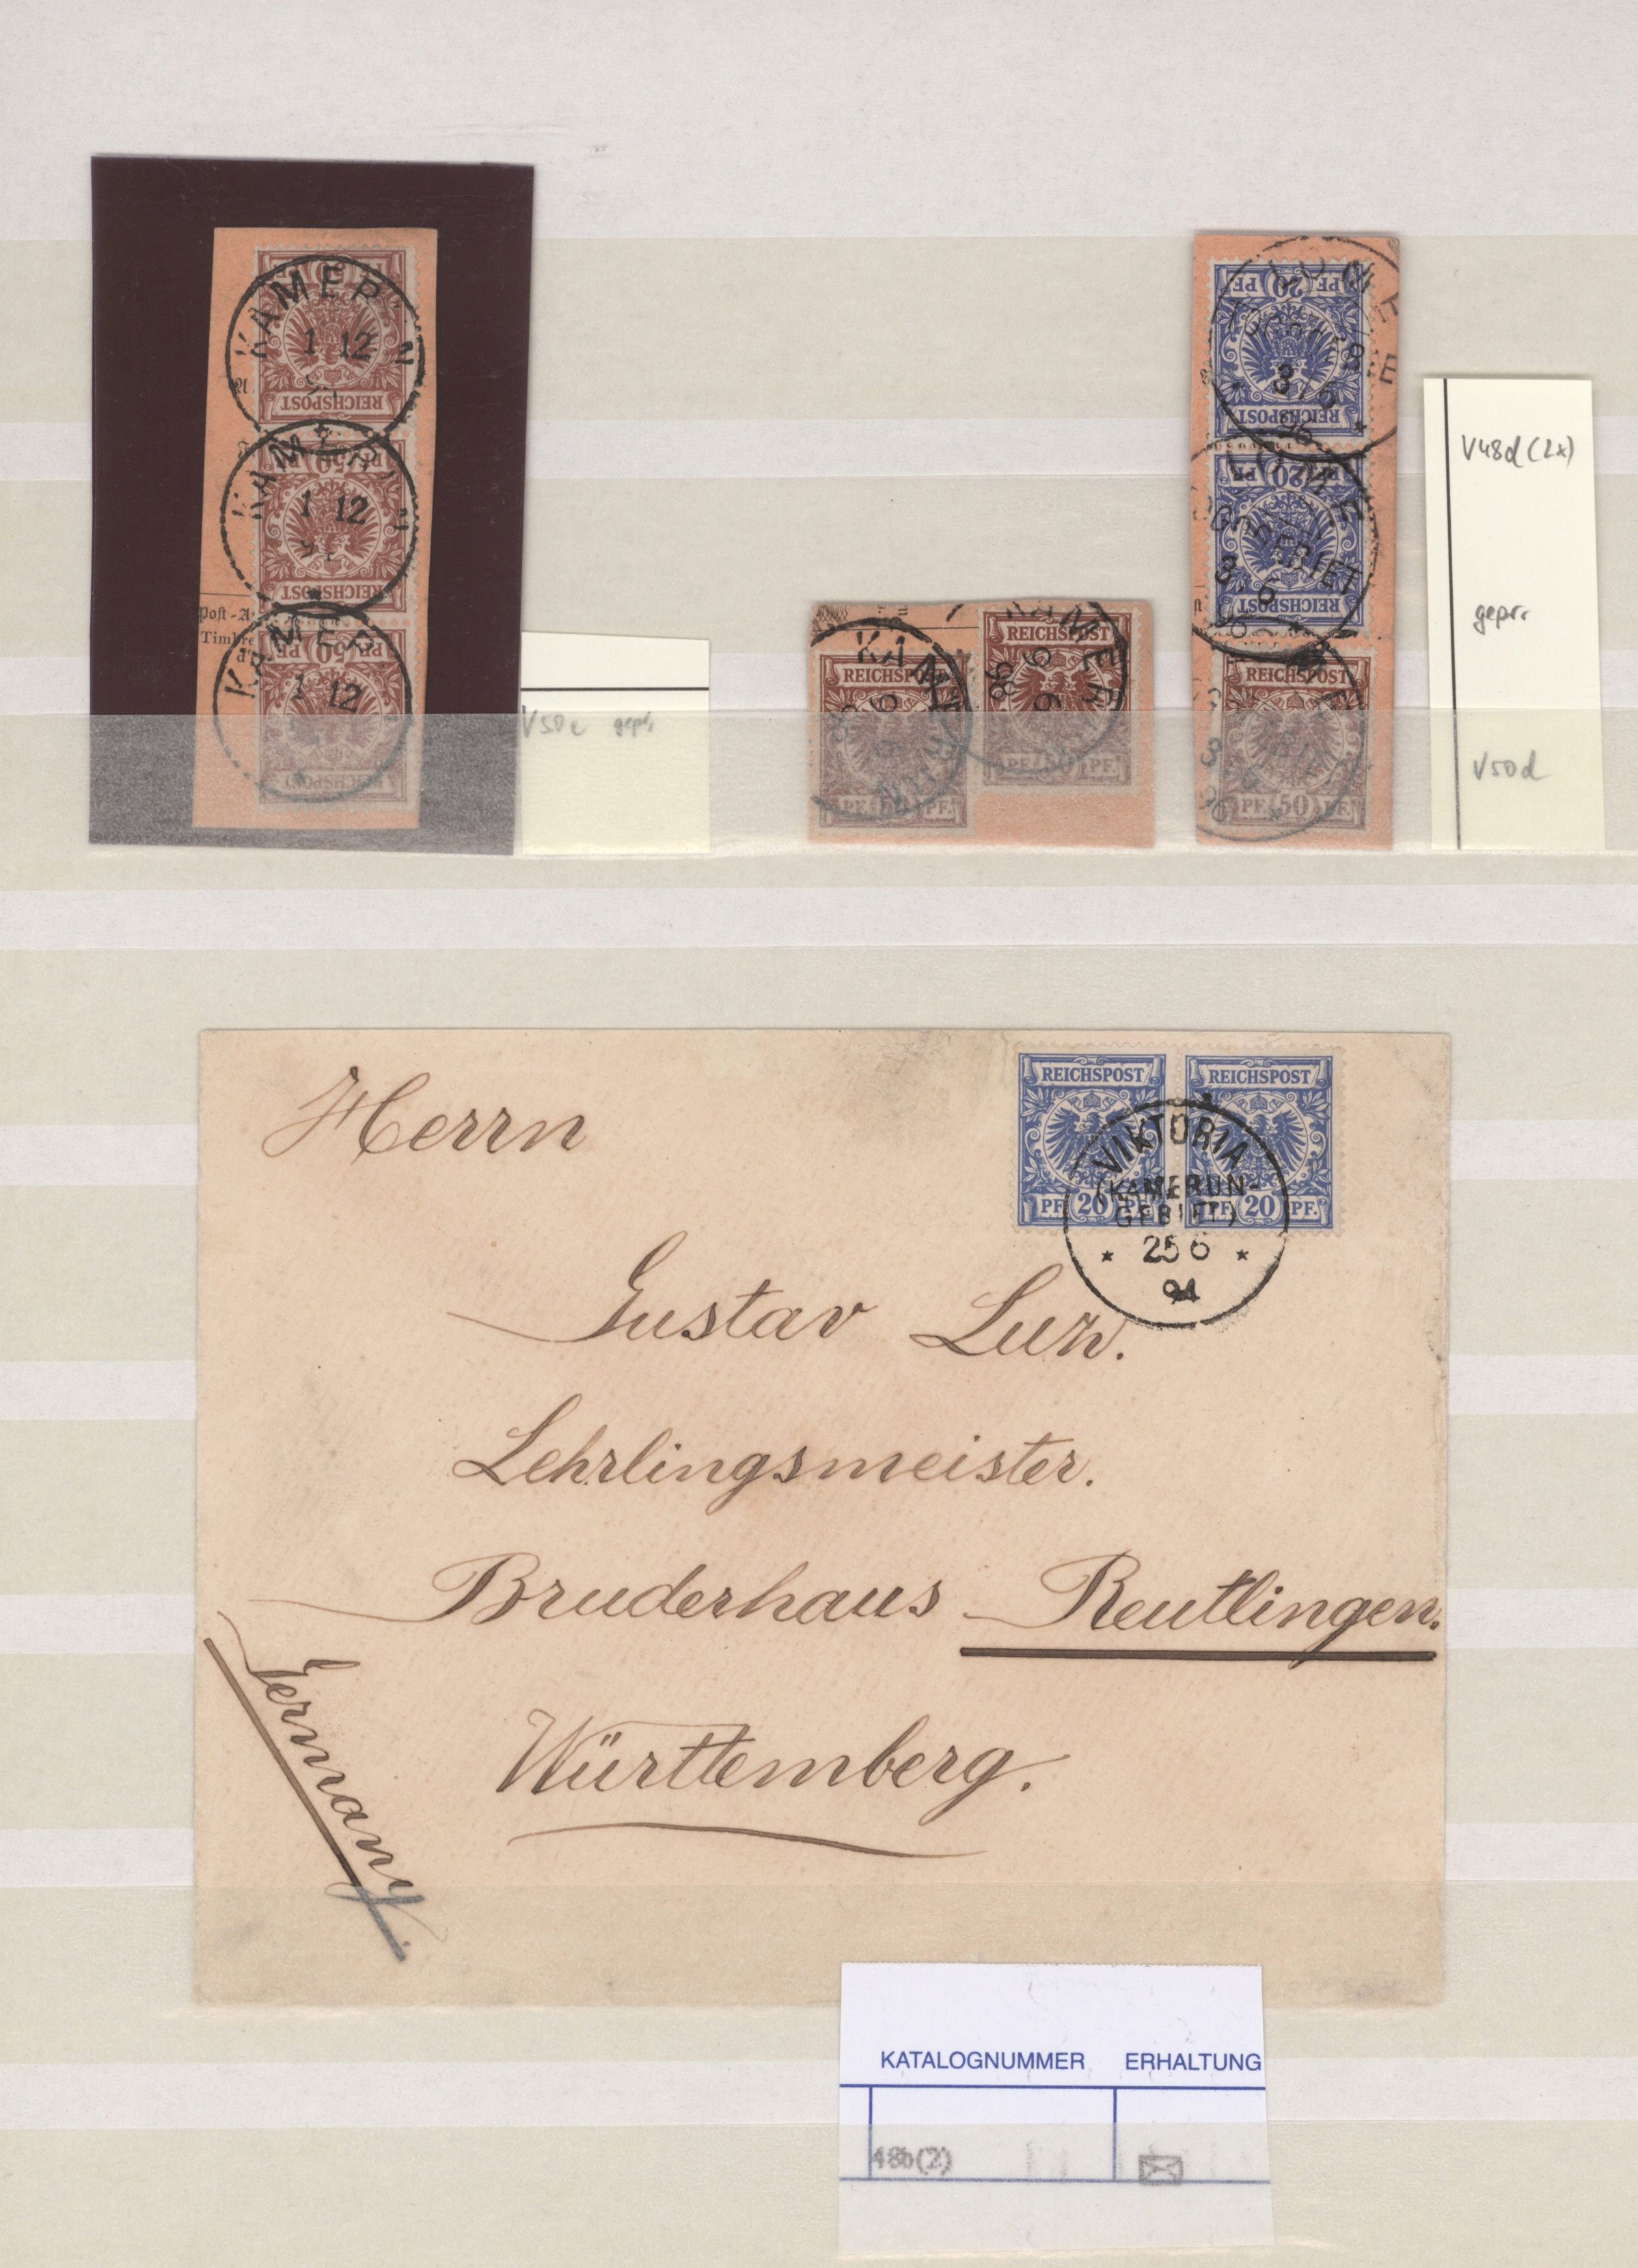 KAMERUN
1 12
REICHSPOST
KAMERUN
1 12
PF. 50 PF.
REICHSPOST
Post-A
Timbre
d'
KAMERUN
PF. 50 PF.
1 12
REICHSPOST
V50c gepr.
KAMERUN
REICHSPOST
6 6
PF. 50 PF.
KAMERUN
REICHSPOST
6 6
98
PF. 50 PF.
PF. 20 PF.
3/6
REICHSPOST
96
LOME
PF. 20 PF.
TOGOGEBIET
3/6
REICHSPOST
96
REICHSPOST
3 6
96
PF. 50 PF.
V48d (2x)
gepr.
V50d
REICHSPOST
REICHSPOST
VIKTORIA
(KAMERUN-
GEBIET)
PF. 20 PF.
PF. 20 PF.
* 25 6 *
94
Herrn
Gustav
Lehrlingsmeister.
Bruderhaus Reutlingen.
Württemberg.
Germany.
KATALOGNUMMER ERHALTUNG
48b(2)